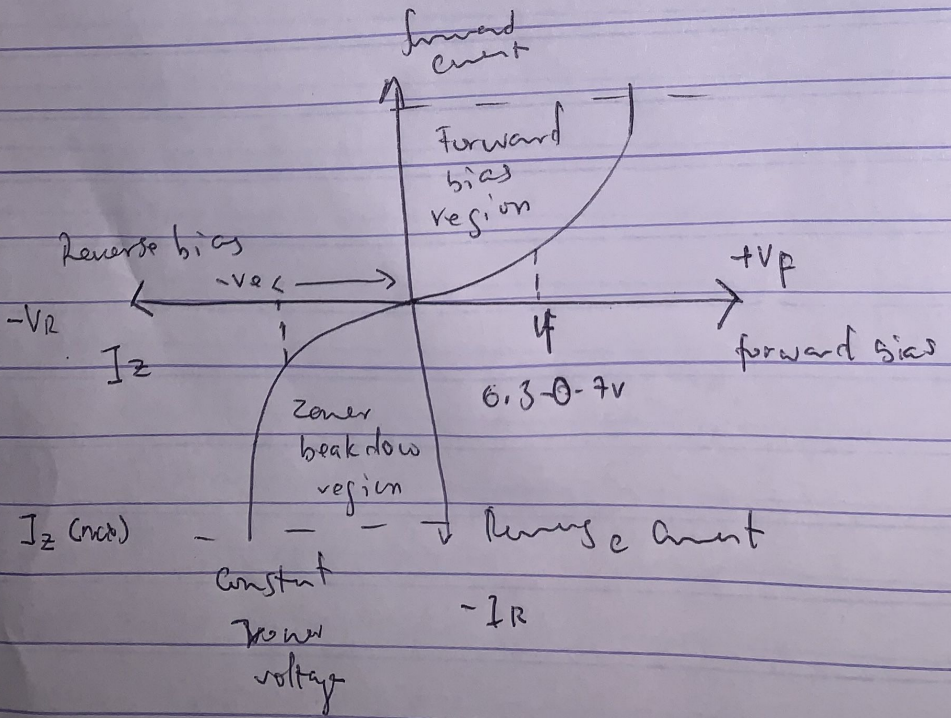 forward
current
Forward
bias
region
Reverse bias
-ve
+VF
-VR
IZ
Vf
forward bias
0.3-0-7v
Zener
beakdow
region
IZ (max)
Reverse Current
Constnt
Zener
voltage
-IR